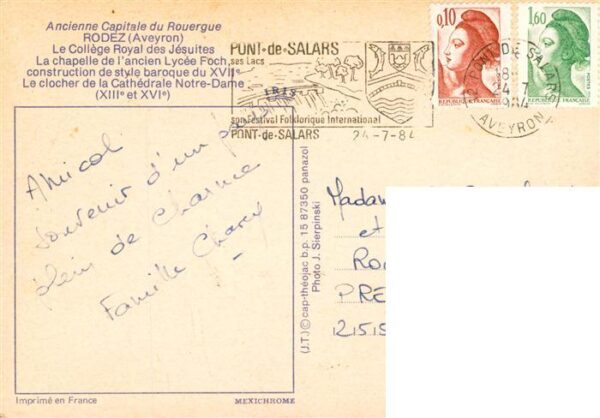 Ancienne Capitale du Rouergue
RODEZ (Aveyron)
Le Collège Royal des Jésuites
La chapelle de l'ancien Lycée Foch,
construction de style baroque du XVIIe
Le clocher de la Cathédrale Notre-Dame
(XIIIe et XVIe)
PONT-de-SALARS
ses Lacs
son Festival Folklorique International
PONT-de-SALARS 24-7-84
0,10
REPUBLIQUE FRANÇAISE
1,60
REPUBLIQUE FRANÇAISE
PONT DE SALARS
18
24-7
1984
AVEYRON
Amical
souvenir d'un
plein de charme
Famille
(J.T.) © cap-théojac b.p. 15 87350 panazol
Photo J. Sierpinski
Madame
et
PRE
Imprimé en France
MEXICHROME